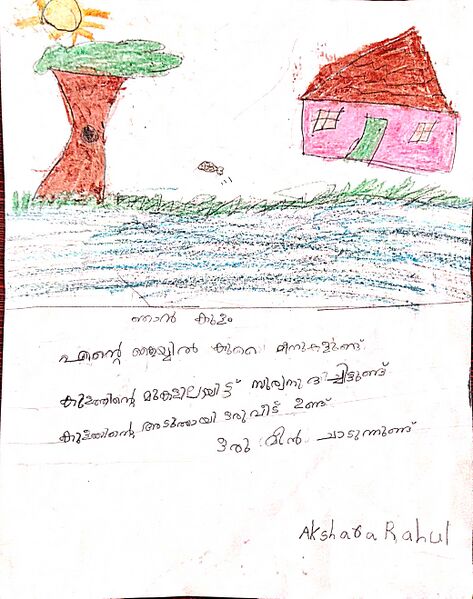 ഞാൻ കുളം
എന്റെ അടിയിൽ കുറെ മീനുകളുണ്ട്
കുളത്തിന്റെ മുകളിലായിട്ട് സൂര്യനുദിച്ചിട്ടുണ്ട്
കുളത്തിന്റെ അടുത്തായി ഒരു വീട് ഉണ്ട്
ഒരു മീൻ ചാടുന്നുണ്ട്
Akshara Rahul